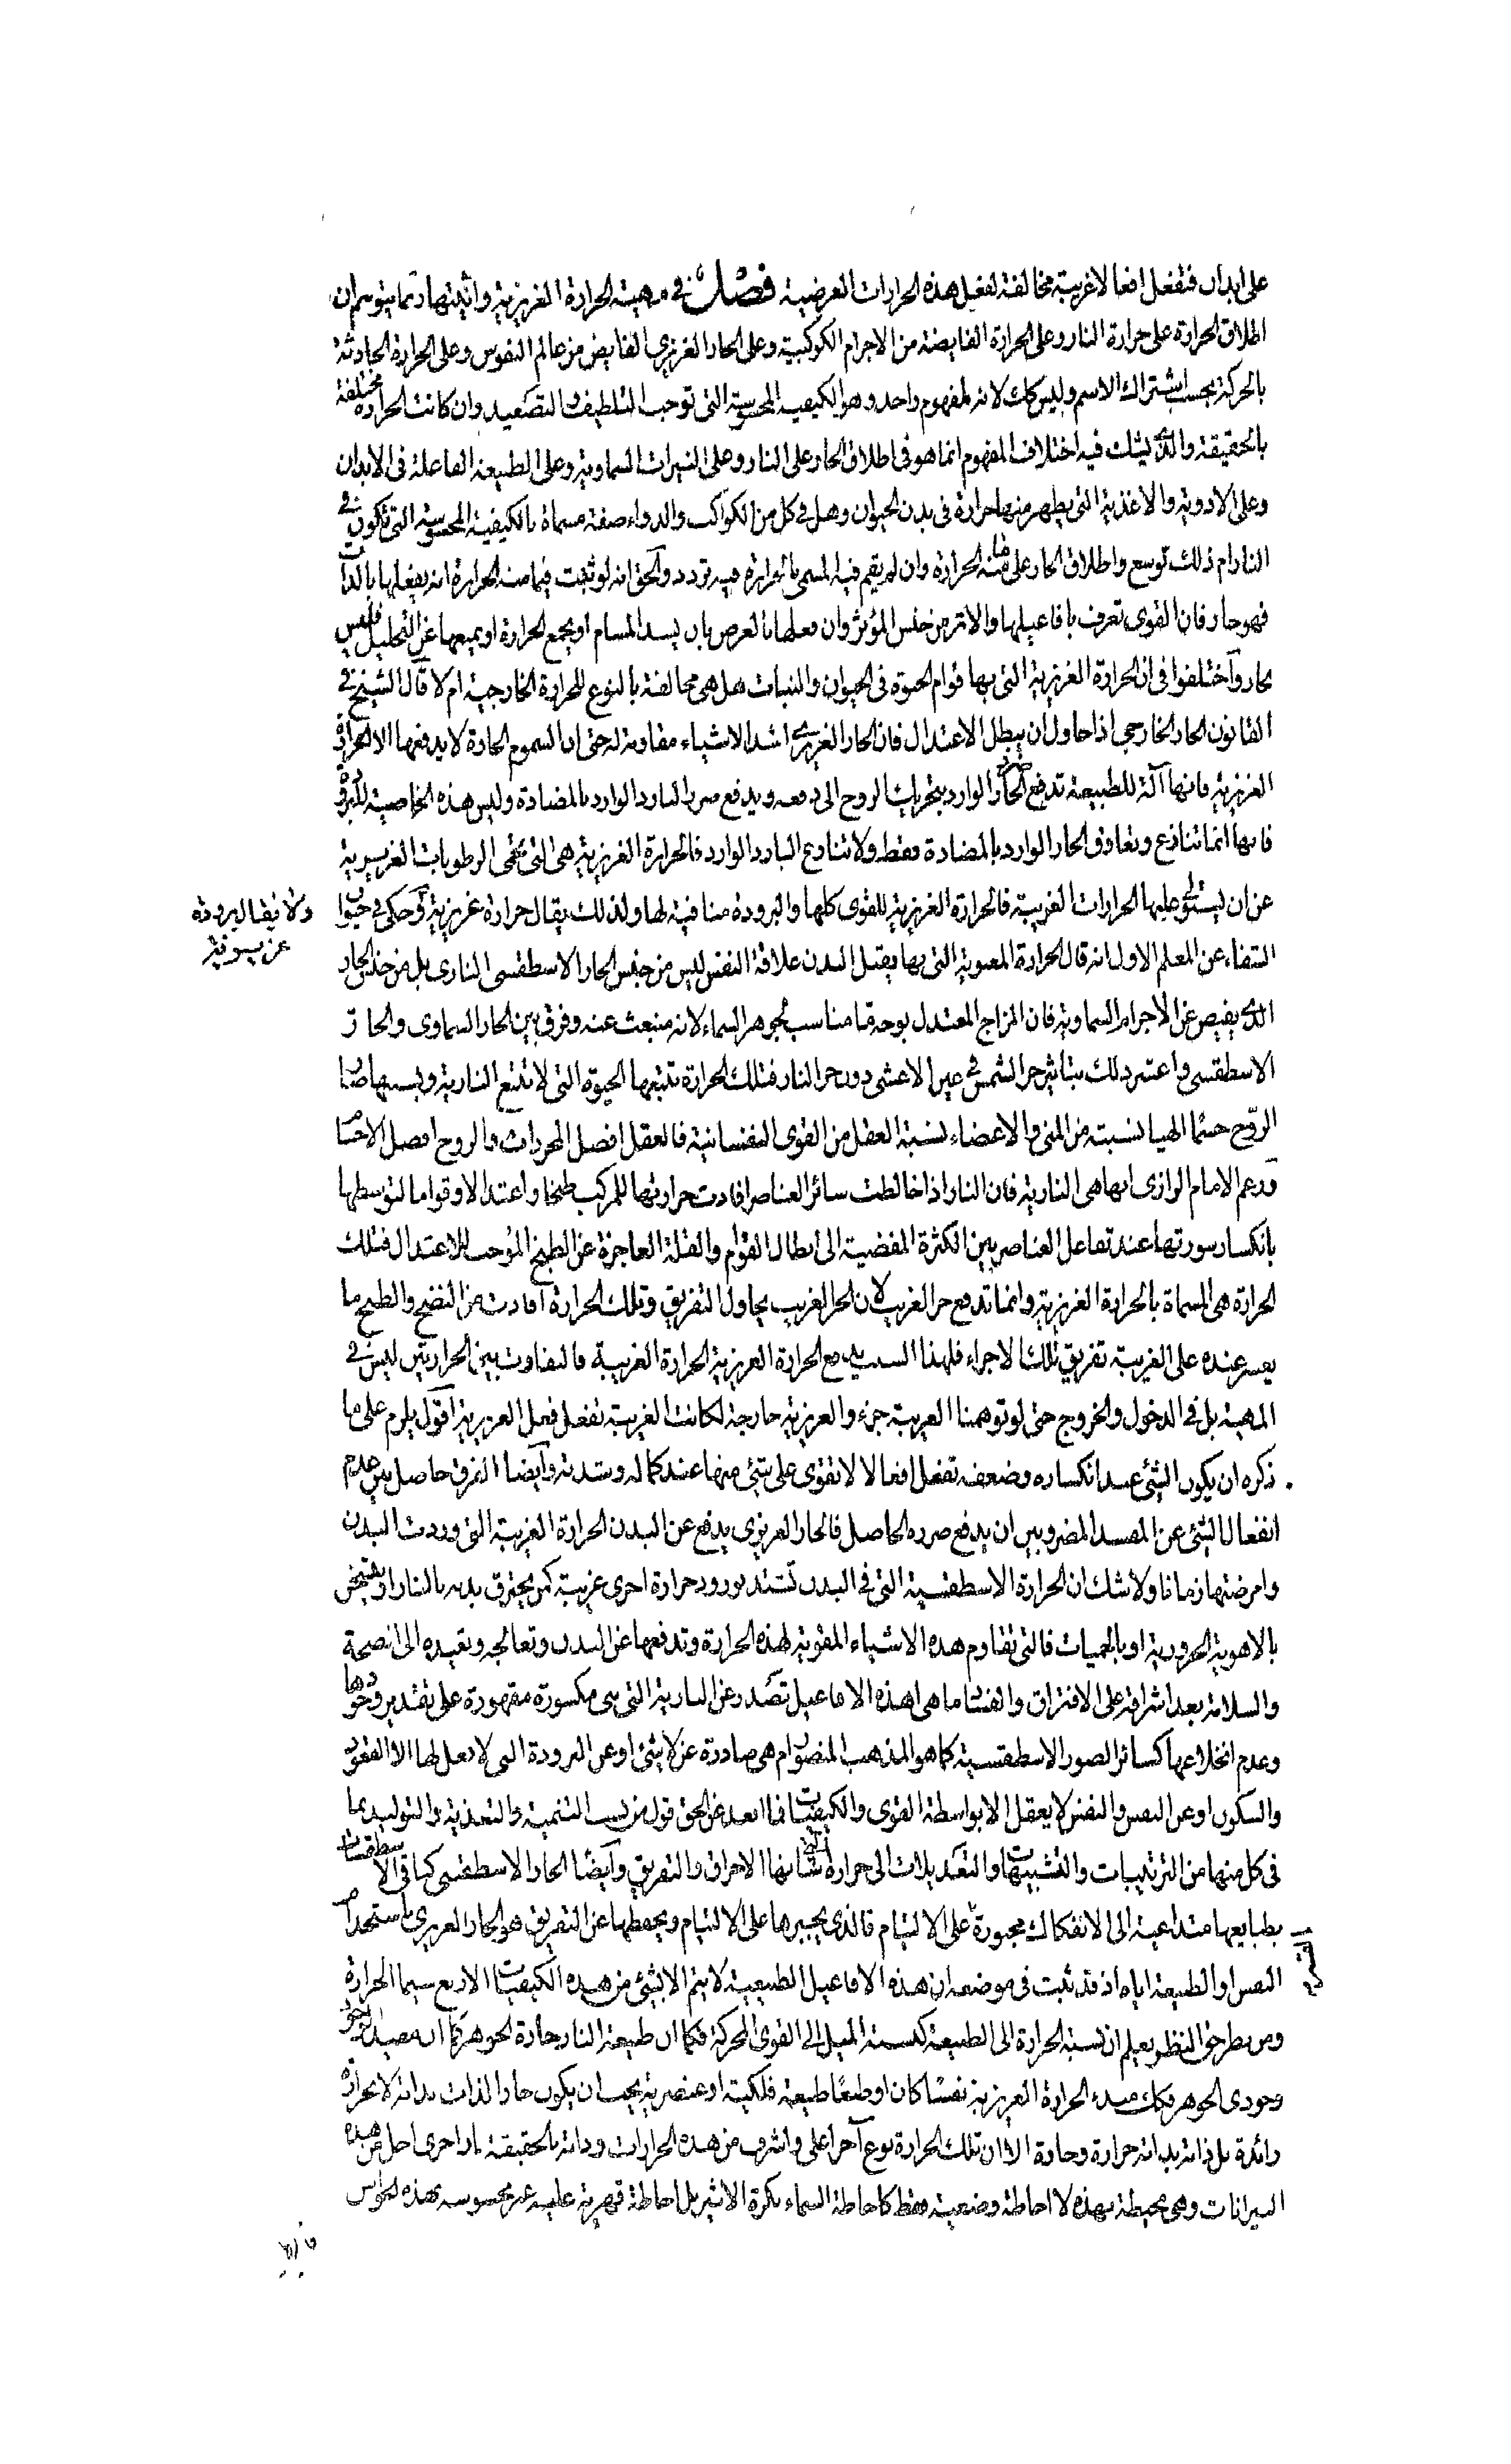 على ابدان فتفعل افعالا غريبة مخالفة لفعل هذه الحرارات العرضية فصل في مهية الحرارة الغريزية وانيتها ربما يتوهم ان
اطلاق الحرارة على حرارة النار وعلى الحرارة الفايضة من الاجرام الكوكبية وعلى الحار الغريزى الفايض من عالم النفوس وعلى الحرارة الحادثة
بالحركة بحسب اشتراك الاسم وليس كك لانه لمفهوم واحد وهو الكيفية المحسوسة التى توجب التلطيف والتصعيد وان كانت الحرارة مختلفة
بالحقيقة والذى يشك فيه اختلاف المفهوم انما هو فى اطلاق الحار على النار وعلى النيرات السماوية وعلى الطبيعة الفاعلة فى الابدان
وعلى الادوية والاغذية التى يظهر منها حرارة فى بدن الحيوان وهل في كل من الكواكب والدواء صفة مسماة بالكيفية المحسوسة التى تكون في
النار ام ذلك توسع واطلاق الحار على ما منه الحرارة وان لم يقم فيه المسمى بالحرارة فيه تردد والحق انه لو ثبت فيما منه الحرارة انه يفعلها بالذات
فهو حار فان القوى تعرف بافاعيلها والاثر من جنس المؤثر وان فعلها بالعرض بان يسد المسام او يجمع الحرارة او يمنعها عن التحليل فليس
بحار واختلفوا فى ان الحرارة الغريزية التى بها قوام الحيوة فى الحيوان والنبات هل هى مخالفة بالنوع للحرارة الخارجية ام لا قال الشيخ في
القانون الحار الخارجى اذا حاول ان يبطل الاعتدال فان الحار الغريزى اشد الاشياء مقاومة له حتى ان السموم الحارة لا يدفعها الا الحرارة
الغريزية فانها آلة للطبيعة تدفع ضرر الحار الوارد بتحريك الروح الى دفعه ويدفع ضرر البارد الوارد بالمضادة وليس هذه الخاصية للبرودة
فانها انما تنازع وتعاوق الحار الوارد بالمضادة فقط ولا تنازع البارد الوارد فالحرارة الغريزية هى التى تحمى الرطوبات الغريزية
عن ان يستولى عليها الحرارات الغريبة فالحرارة الغريزية للقوى كلها والبرودة منافية لها ولذلك يقال حرارة غريزية وحكى في حيوان
ولا يقال برودة
غريزية
الشفاء عن المعلم الاول انه قال الحرارة المعنوية التى بها يقبل البدن علاقة النفس ليس من جنس الحار الاسطقسى النارى بل من جنس الحار
الذى يفيض عن الاجرام السماوية فان المزاج المعتدل بوجه ما مناسب لجوهر السماء لانه منبعث عنه وفرق بين الحار السماوى والحار
الاسطقسى واعتبر ذلك بتاثير حر الشمس في عين الاعشى دون حر النار فتلك الحرارة تتبعها الحيوة التى لا تتبع النارية وبسببها صار
الروح جسما الهيا نسبته من المنى والاعضاء نسبة العقل من القوى النفسانية فالعقل افضل المجردات والروح افضل الاجسام
وزعم الامام الرازى انها هى النارية فان النار اذا خالطت سائر العناصر افادت حرارتها للمركب طبخا واعتدالا وقواما لتوسطها
بانكسار سورتها عند تفاعل العناصر بين الكثرة المفضية الى ابطال القوام والقلة العاجزة عن الطبخ الموجب للاعتدال فتلك
الحرارة هى المسماة بالحرارة الغريزية وانما تدفع حر الغريب لان الحر الغريب يحاول التفريق وتلك الحرارة افادت من النضج والطبخ ما
يعسر عنده على الغريبة تفريق تلك الاجزاء فلهذا السبب يدفع الحرارة الغريزية الحرارة الغريبة فالتفاوت بين الحرارتين ليس في
المهية بل فى الدخول والخروج حتى لو توهمنا الغريبة جزء والغريزية خارجة لكانت الغريبة تفعل فعل الغريزية اقول يلزم على ما
ذكره ان يكون الشئ عند انكساره وضعفه تفعل افعالا لا تقوى على شئ منها عند كماله وشدته وايضا الفرق حاصل بين عدم
انفعال الشئ عن المفسد المضر وبين ان يدفع ضرره الحاصل فالحار الغريزى يدفع عن البدن الحرارة الغريبة التى وردت البدن
وامرضتها زمانا ولا شك ان الحرارة الاسطقسية التى فى البدن تشتد بورود حرارة اخرى غريبة كمن يحترق بدنه بالنار او يتسخن
بالاهوية الحرورية او بالحميات فالتى تقاوم هذه الاشياء المقوية لهذه الحرارة وتدفعها عن البدن وتعالجه وتعيده الى الصحة
والسلامة بعد اشرافه على الافتراق والفساد ما هى اهذه الافاعيل تصدر عن النارية التى هى مكسورة مقهورة على تقدير وجودها
وعدم انخلاعها كسائر الصور الاسطقسية كما هو المذهب المنصور ام هى صادرة عن لا شئ او عن البرودة التى لا فعل لها الا الفتور
والسكون او عن النفس والنفس لا يفعل الا بواسطة القوى والكيفيات فما ابعد عن الحق قول من نسب التنمية والتغذية والتوليد بما
فى كل منها من الترتيبات والتشبيهات والتعديلات الى حرارة التى شانها الاحراق والتفريق وايضا الحار الاسطقسى كباقى الاسطقسات
بطبايعها متداعية الى الانفكاك مجبورة على الالتيام فالذى يجبرها على الالتيام ويحفظها عن التفريق هو الحار الغريزى باستخدام
النفس او الطبيعة اياه اذ قد ثبت فى موضعه ان هذه الافاعيل الطبيعية لا يتم الا بشئ من هذه الكيفيات الاربع سيما الحرارة
ومن طرحق النظر يعلم ان نسبة الحرارة الى الطبيعة كنسبة الميل الى القوى المحركة فكما ان طبيعة النار حارة الجوهر كما ان مفيد الوجود
وجودى الجوهر فكك مبدء الحرارة الغريزية نفسا كان او طبعا طبيعة فلكية او عنصرية يجب ان يكون حار الذات بذاته لا بحرارة
زائدة بل ذاته بذاته حرارة وحارة الا ان تلك الحرارة نوع آخر اعلى واشرف من هذه الحرارات وذاته بالحقيقة نار اخرى اجل من هذه
النيرانات وهى محيطة بهذه لا احاطة وضعية فقط كاحاطة السماء بكرة الاثير بل احاطة قهرية علية غير محسوسة بهذه الحواس